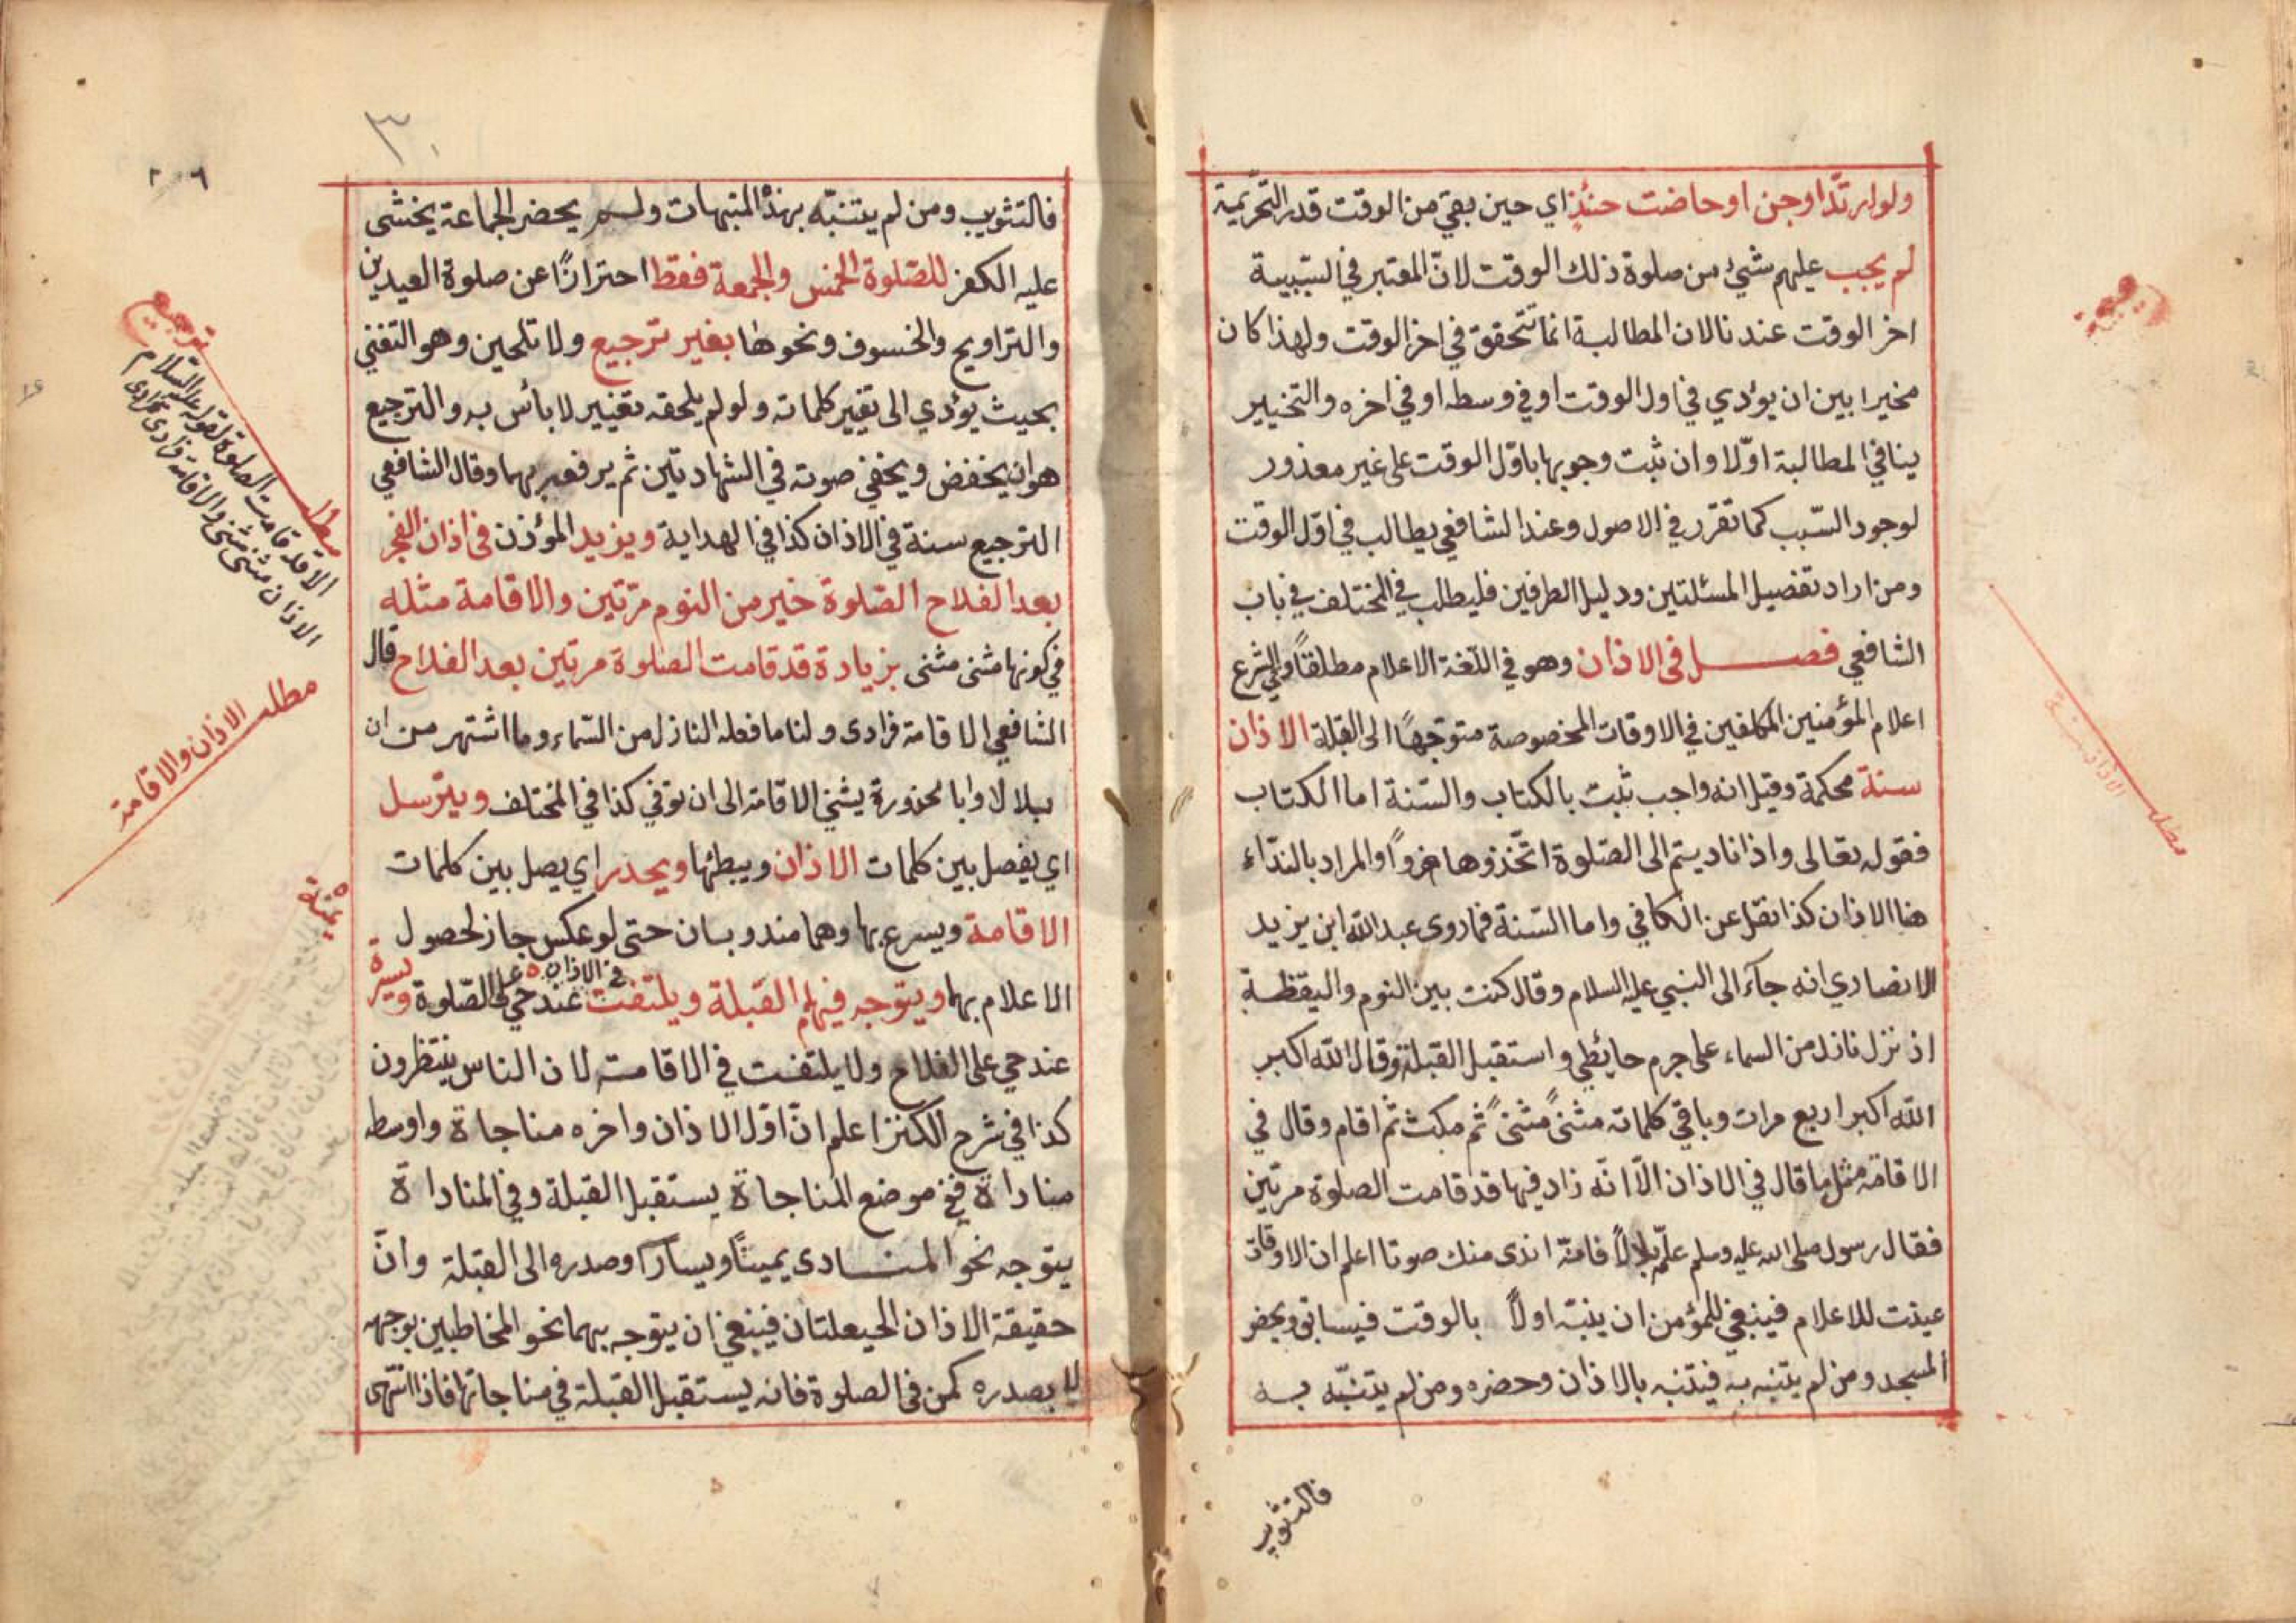 ولو ارتدا وجن او حاضت حنئذ اي حين بقي من الوقت قدر التحريمة
لم يجب عليهم شيئ من صلوة ذلك الوقت لانّ المعتبر في السّببية
اخر الوقت عندنا لان المطالبة انما تتحقق في اخر الوقت ولهذا كان
مخيرا بين ان يؤدي في اول الوقت او في وسطه او في اخره والتخيير
ينافي المطالبة اوّلا وان ثبت وجوبها باوّل الوقت على غير معذور
لوجود السّبب كما تقرر في الاصول وعند الشافعي يطالب في اوّل الوقت
ومن اراد تفصيل المسئلتين ودليل الطرفين فليطلب في المختلف في باب
الشافعي فصل فى الاذان وهو في اللّغة الاعلام مطلقاً وفي الشرع
اعلام المؤمنين المكلفين في الاوقات المخصوصة متوجّهاً الى القبلة الاذان
سنة محكمة وقيل انه واجب ثبت بالكتاب والسّنة اما الكتاب
فقوله تعالى واذا ناديتم الى الصّلوة اتّخذوها هزواً والمراد بالندّاء
هنا الاذان كذا نقل عن الكافي واما السّنة فما روى عبد الله ابن يزيد
الانصاري انه جآء الى النبي عليه السلام وقال كنت بين النوم واليقظة
اذ نزل نازل من السماء على جرم حايط واستقبل القبلة وقال الله اكبر
الله اكبر اربع مرات وباقي كلماته مثنىً مثنىً ثم مكث ثم اقام وقال في
الاقامة مثل ما قال في الاذان الّا انّه زاد فيها قد قامت الصلوة مرتين
فقال رسول صلى الله عليه وسلم علّم بلالاً فانّه اندى منك صوتا اعلم ان الاوقات
عينت للاعلام فينبغي للمؤمن ان ينبّه اولاً بالوقت فيسابق ويحضر
المسجد ومن لم يتنبه به فيتنبه بالاذان وحضره ومن لم يتنبّه به
فالتثويب
مطلب الاذان سنة
٣٠
فالتثويب ومن لم يتنبّه بهذه المنبهات ولم يحضر الجماعة يخشى
عليه الكفر للصّلوة الخمس والجمعة فقط احترازًا عن صلوة العيدين
والتراويح والخسوف ونحوها بغير ترجيع ولا تلحين وهو التغني
بحيث يؤدي الى تغير كلماته ولو لم يلحقه تغيير لا بأس به والترجيع
هو ان يخفض ويخفي صوته في الشهادتين ثم يرفع بهما وقال الشافعي
الترجيع سنة في الاذان كذا في الهداية ويزيد المؤذن فى اذان الفجر
بعد الفلاح الصّلوة خير من النوم مرّتين والاقامة مثله
في كونها مثنى مثنى بزيادة قد قامت الصلوة مرتين بعد الفلاح قال
الشافعي الاقامة فرادى ولنا ما فعله النازل من السّماء وما اشتهر من ان
بلالا وابا محذورة يثني الاقامة الى ان توفي كذا في المختلف ويترسل
اي يفصل بين كلمات الاذان ويبطئها ويحدر اي يصل بين كلمات
الاقامة ويسرع بها وهما مندوبان حتى لو عكس جاز لحصول
الاعلام بهما ويتوجه فيهما القبلة ويلتفت في الاذان عند حي على الصّلوة ويسرة
عند حي على الفلاح ولا يلتفت في الاقامة لان الناس ينتظرون
كذا في شرح الكنز اعلم انّ اوّل الاذان واخره مناجاة واوسطه
مناداة ففي موضع المناجاة يستقبل القبلة وفي المناداة
يتوجه نحو المنادى يميناً ويسارا وصدره الى القبلة وانّ
حقيقة الاذان الحيعلتان فينبغي ان يتوجه بهما نحو المخاطبين بوجهه
لا بصدره كمن فى الصلوة فانه يستقبل القبلة في مناجاتها فاذا انتهى
مطلب ترجيع
الا قد قامت الصلوة لقوله عليه السّلام
الاذان مثنى مثنى والاقامة فرادى فرادى
مطلب الاذان والاقامة
يمنة